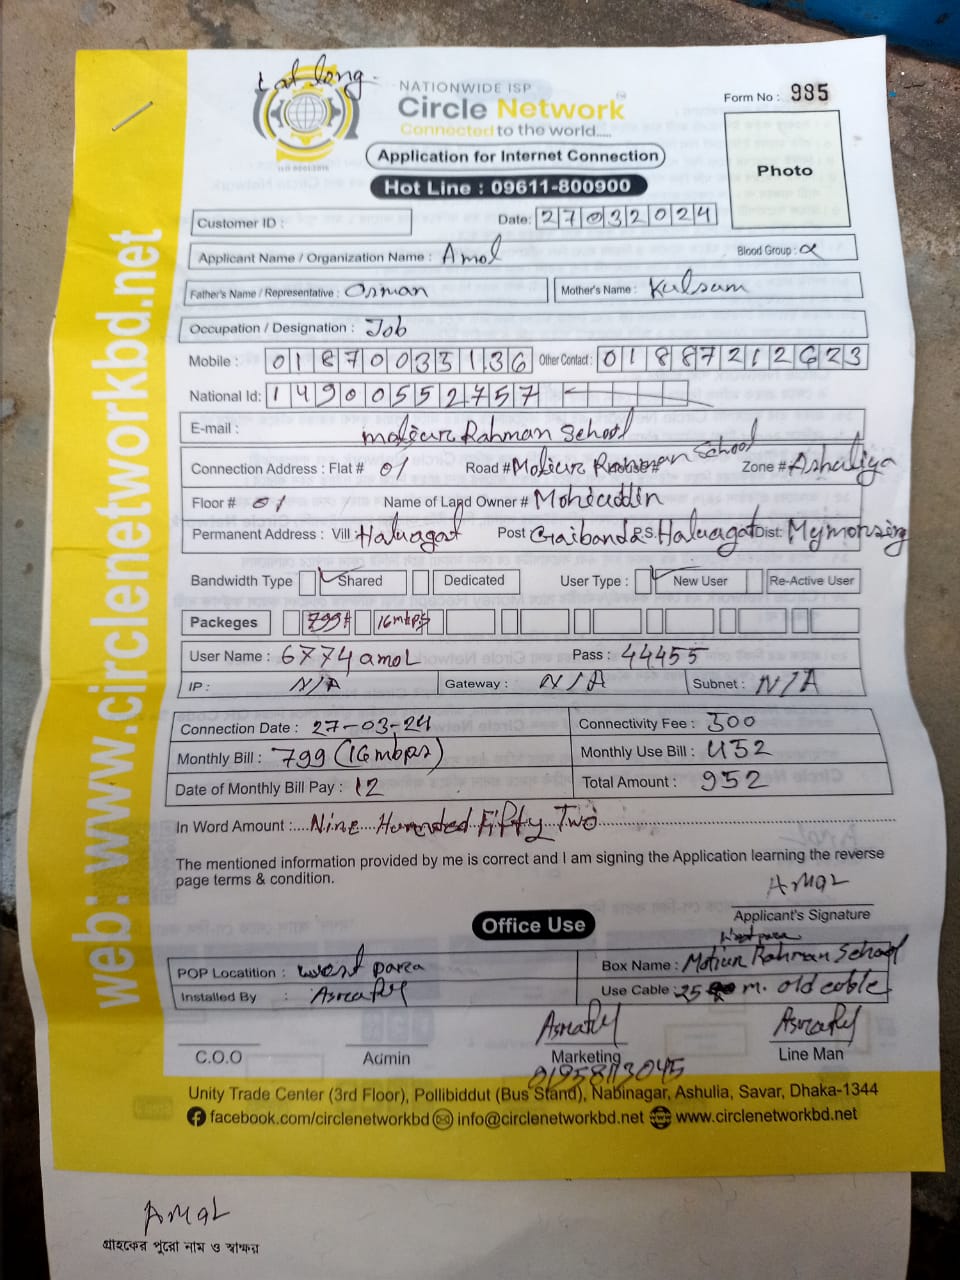 Lat long.
NATIONWIDE ISP
Circle Network
Connected to the world.....
ISO 9001:2015
Form No : 985
Application for Internet Connection
Photo
Hot Line : 09611-800900
Customer ID :
Date: 27032024
Applicant Name / Organization Name : Amol Blood Group :
Father's Name / Representative : Osman Mother's Name : Kulsum
Occupation / Designation : Job
Mobile : 01870035136 Other Contact : 01887212623
National Id: 1490552757
E-mail :
Connection Address : Flat # 01 Road # Rahman School Zone # Ashuliya
Floor # 01 Name of Land Owner # Mohiuddin
Permanent Address : Vill Haluagat Post P.S. Haluagat Dist:
Bandwidth Type Shared Dedicated User Type : New User Re-Active User
Packeges 799 16mbps
User Name : 6774amoL Pass : 44455
IP : N/A Gateway : N/A Subnet : N/A
Connection Date : 27-03-24 Connectivity Fee : 500
Monthly Bill : 799 (16mbps) Monthly Use Bill : 452
Date of Monthly Bill Pay : 12 Total Amount : 952
In Word Amount :.... Nine Hunded Fifty Two
The mentioned information provided by me is correct and I am signing the Application learning the reverse
page terms & condition.
AMOL
Applicant's Signature
Office Use
West para
POP Locatition : West para Box Name : Rahman School
Installed By : Use Cable : 25 m. old cable
C.O.O Admin Marketing Line Man
Unity Trade Center (3rd Floor), Pollibiddut (Bus Stand), Nabinagar, Ashulia, Savar, Dhaka-1344
facebook.com/circlenetworkbd info@circlenetworkbd.net www.circlenetworkbd.net
web: www.circlenetworkbd.net
AMOL
গ্রাহকের পুরো নাম ও স্বাক্ষর